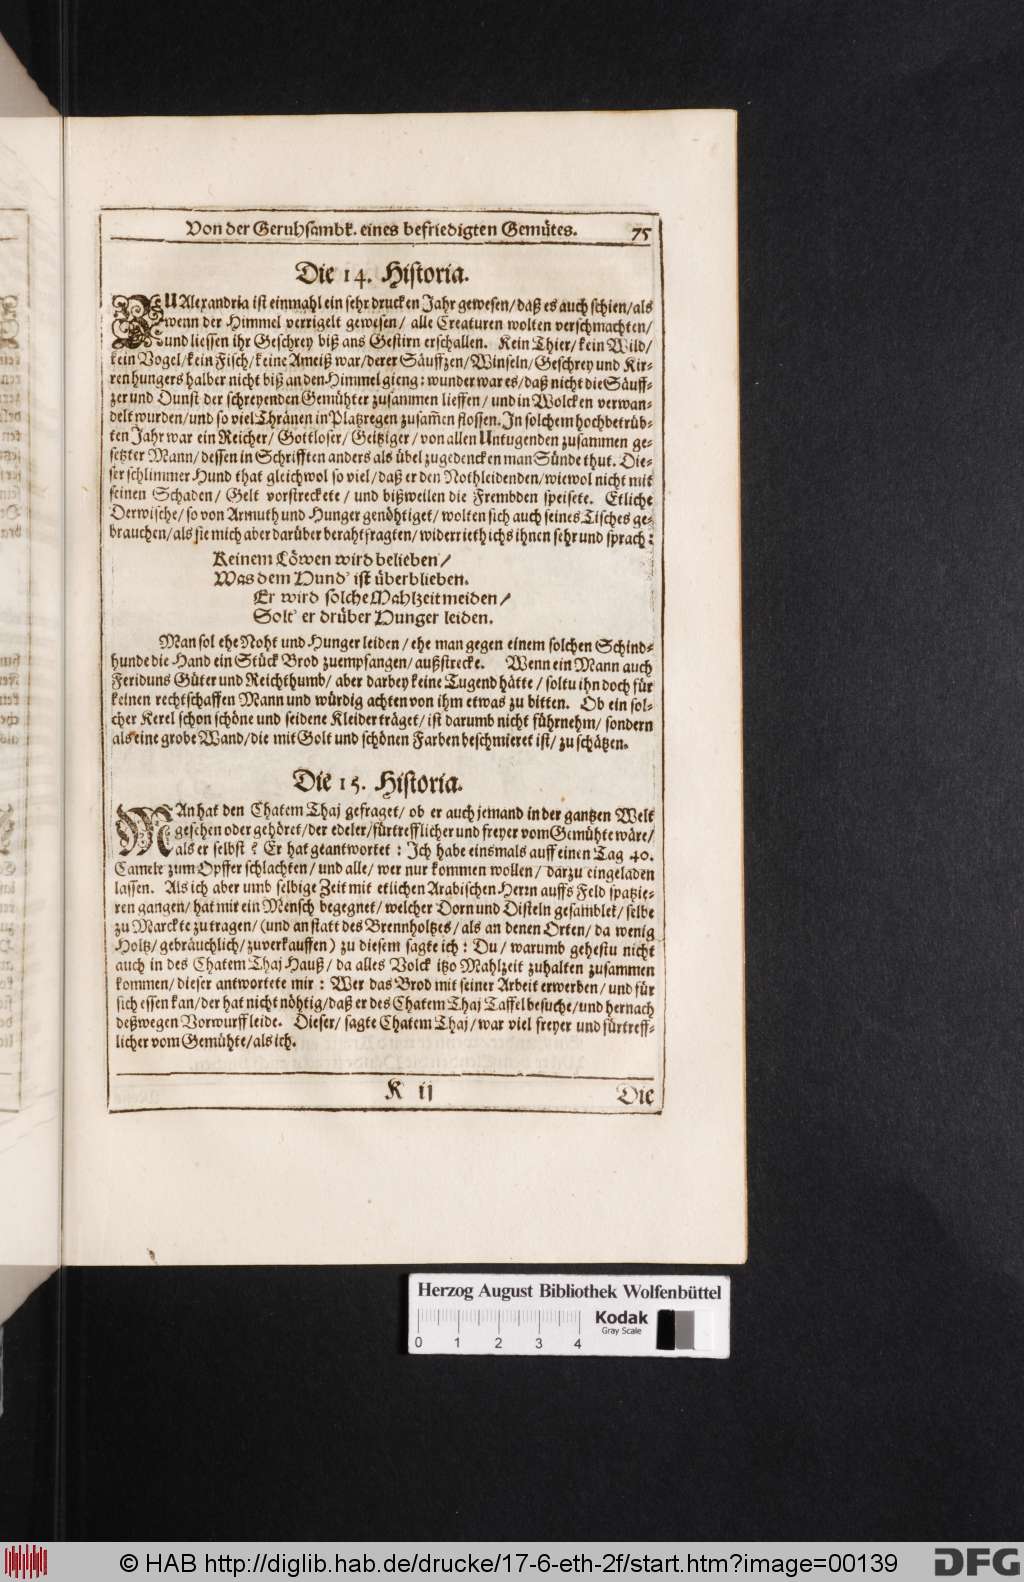 Von der Geruhsambk. eines befriedigten Gemütes. 75
Die 14. Historia.
ZU Alexandria ist einmahl ein sehr drucken Jahr gewesen/ daß es auch schien/ als
wenn der Himmel verrigelt gewesen/ alle Creaturen wolten verschmachten/
und liessen ihr Geschrey biß ans Gestirn erschallen. Kein Thier/ kein Wild/
kein Vogel/ kein Fisch/ keine Ameiß war/ derer Säuffzen/ Winseln/ Geschrey und Kir-
ren hungers halber nicht biß an den Himmel gieng: wunder war es/ daß nicht die Säuff-
zer und Dunst der schreyenden Gemühter zusammen lieffen/ und in Wolcken verwan-
delt wurden/ und so viel Thränen in Platzregen zusam̃en flossen. In solchem hochbetrüb-
ten Jahr war ein Reicher/ Gottloser/ Geitziger/ von allen Untugenden zusammen ge-
setzter Mann/ dessen in Schrifften anders als übel zugedencken man Sünde thut. Die-
ser schlimmer Hund that gleichwol so viel/ daß er den Nothleidenden/ wiewol nicht mit
seinen Schaden/ Gelt vorstreckete/ und bißweilen die Frembden speisete. Etliche
Derwische/ so von Armuth und Hunger genöhtiget/ wolten sich auch seines Tisches ge-
brauchen/ als sie mich aber darüber beraht fragten/ widerrieth ichs ihnen sehr und sprach:
Keinem Löwen wird belieben/
Was dem Hund' ist überblieben.
Er wird solche Mahlzeit meiden/
Solt' er drüber Hunger leiden.
Man sol ehe Noht und Hunger leiden/ ehe man gegen einem solchen Schind-
hunde die Hand ein Stück Brod zuempfangen/ außstrecke. Wenn ein Mann auch
Feriduns Güter und Reichthumb/ aber darbey keine Tugend hätte/ soltu ihn doch für
keinen rechtschaffen Mann und würdig achten von ihm etwas zu bitten. Ob ein sol-
cher Kerel schon schöne und seidene Kleider träget/ ist darumb nicht führnehm/ sondern
als eine grobe Wand/ die mit Golt und schönen Farben beschmieret ist/ zu schätzen.
Die 15. Historia.
MAn hat den Chatem Thaj gefraget/ ob er auch jemand in der gantzen Welt
gesehen oder gehöret/ der edeler/ fürtrefflicher und freyer vom Gemühte wäre/
als er selbst? Er hat geantwortet: Ich habe einsmals auff einen Tag 40.
Camele zum Opffer schlachten/ und alle/ wer nur kommen wollen/ darzu eingeladen
lassen. Als ich aber umb selbige Zeit mit etlichen Arabischen Herrn auffs Feld spatzie-
ren gangen/ hat mir ein Mensch begegnet/ welcher Dorn und Disteln gesamblet/ selbe
zu Marckte zu tragen/ (und an statt des Brennholtzes/ als an denen Orten/ da wenig
Holtz/ gebräuchlich/ zuverkauffen) zu diesem sagte ich: Du/ warumb gehestu nicht
auch in des Chatem Thaj Hauß/ da alles Volck itzo Mahlzeit zuhalten zusammen
kommen/ dieser antwortete mir: Wer das Brod mit seiner Arbeit erwerben/ und für
sich essen kan/ der hat nicht nöhtig/ daß er des Chatem Thaj Taffel besuche/ und hernach
deßwegen Vorwurff leide. Dieser/ sagte Chatem Thaj/ war viel freyer und fürtreff-
licher vom Gemühte/ als ich.
K ij Die
Herzog August Bibliothek Wolfenbüttel
0 1 2 3 4
Kodak
Gray Scale
© HAB http://diglib.hab.de/drucke/17-6-eth-2f/start.htm?image=00139
DFG